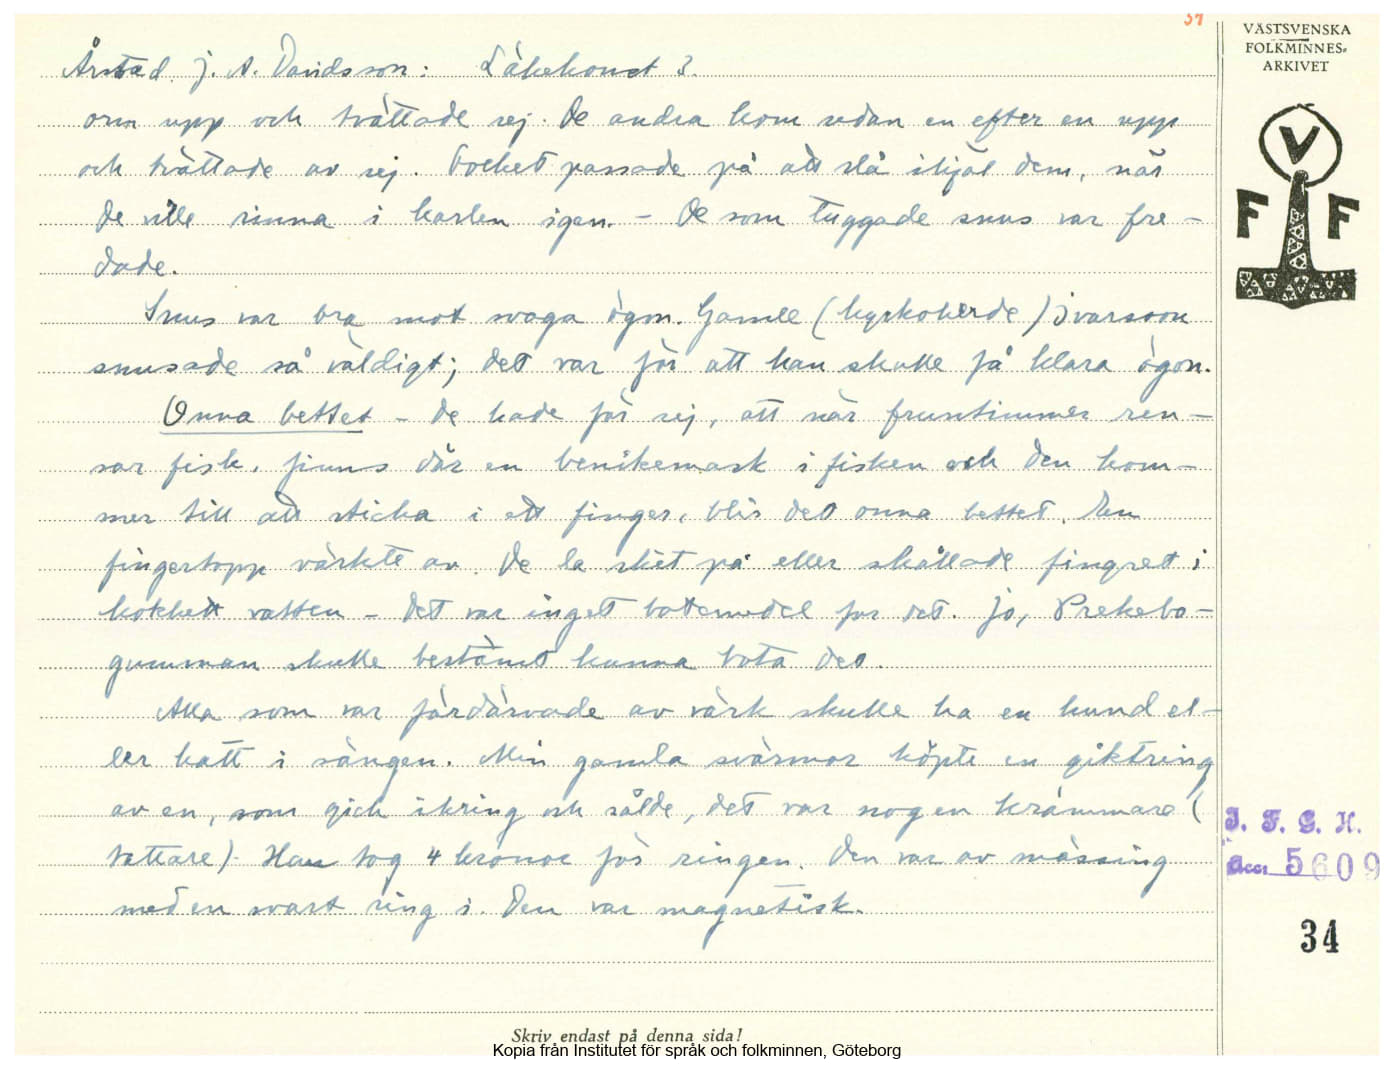 34
VÄSTSVENSKA
FOLKMINNES-
ARKIVET
V
F F
Årstad. J. A. Davidsson: Läkekonst 3.
orm upp och tvättade sej. De andra kom sedan en efter en upp
och tvättade av sej. Folket passade på att slå ihjäl dem, när
de ville rinna i karlen igen. – De som tuggade snus var fre-
dade.
Snus var bra mot svaga ögon. Gamle (kyrkoherde) Ivarsson
snusade så väldigt; det var för att han skulle få klara ögon.
Onna bettet – de hade för sej, att när fruntimmer ren-
sar fisk, finns där en benikemask i fisken och den kom-
mer till att sticka i ett finger, blir det onna bettet. En
fingertopp värkte av. De la skit på eller skållade fingret i
kokhett vatten – det var inget botemedel för det. Jo, Prekebo-
gumman skulle bestämt kunna bota det.
Alla som var fördärvade av värk skulle ha en hund el-
ler katt i sängen. Min gamla svärmor köpte en giktring
av en, som gick ikring och sålde, det var nog en krämmare (
tattare). Han tog 4 kronor för ringen. Den var av mässing
med en svart ring i. Den var magnetisk.
I. F. G. H.
Acc: 5609
34
Skriv endast på denna sida!
Kopia från Institutet för språk och folkminnen, Göteborg